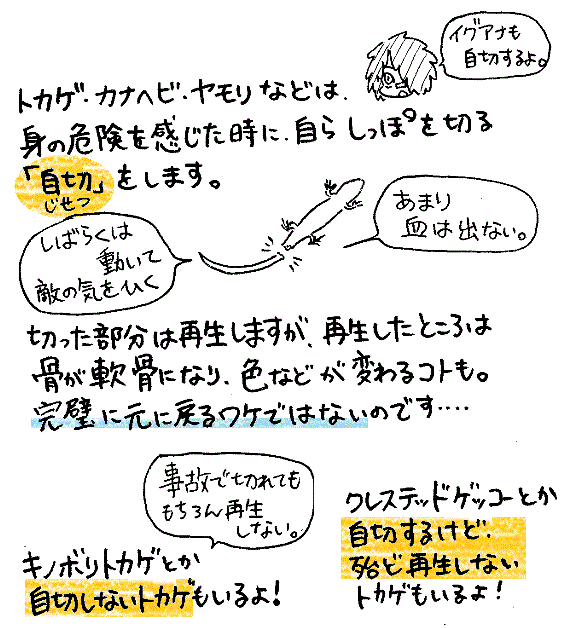 イグアナも
自切するよ。
トカゲ・カナヘビ・ヤモリなどは、
身の危険を感じた時に、自らしっぽを切る
「自切」をします。
じせつ
あまり
血は出ない。
しばらくは
動いて
敵の気をひく
切った部分は再生しますが、再生したところは
骨が軟骨になり、色などが変わるコトも。
完璧に元に戻るワケではないのです‥‥
事故で切れても
もちろん再生
しない。
キノボリトカゲとか
自切しないトカゲもいるよ!
クレステッドゲッコーとか
自切するけど、
殆ど再生しない
トカゲもいるよ!